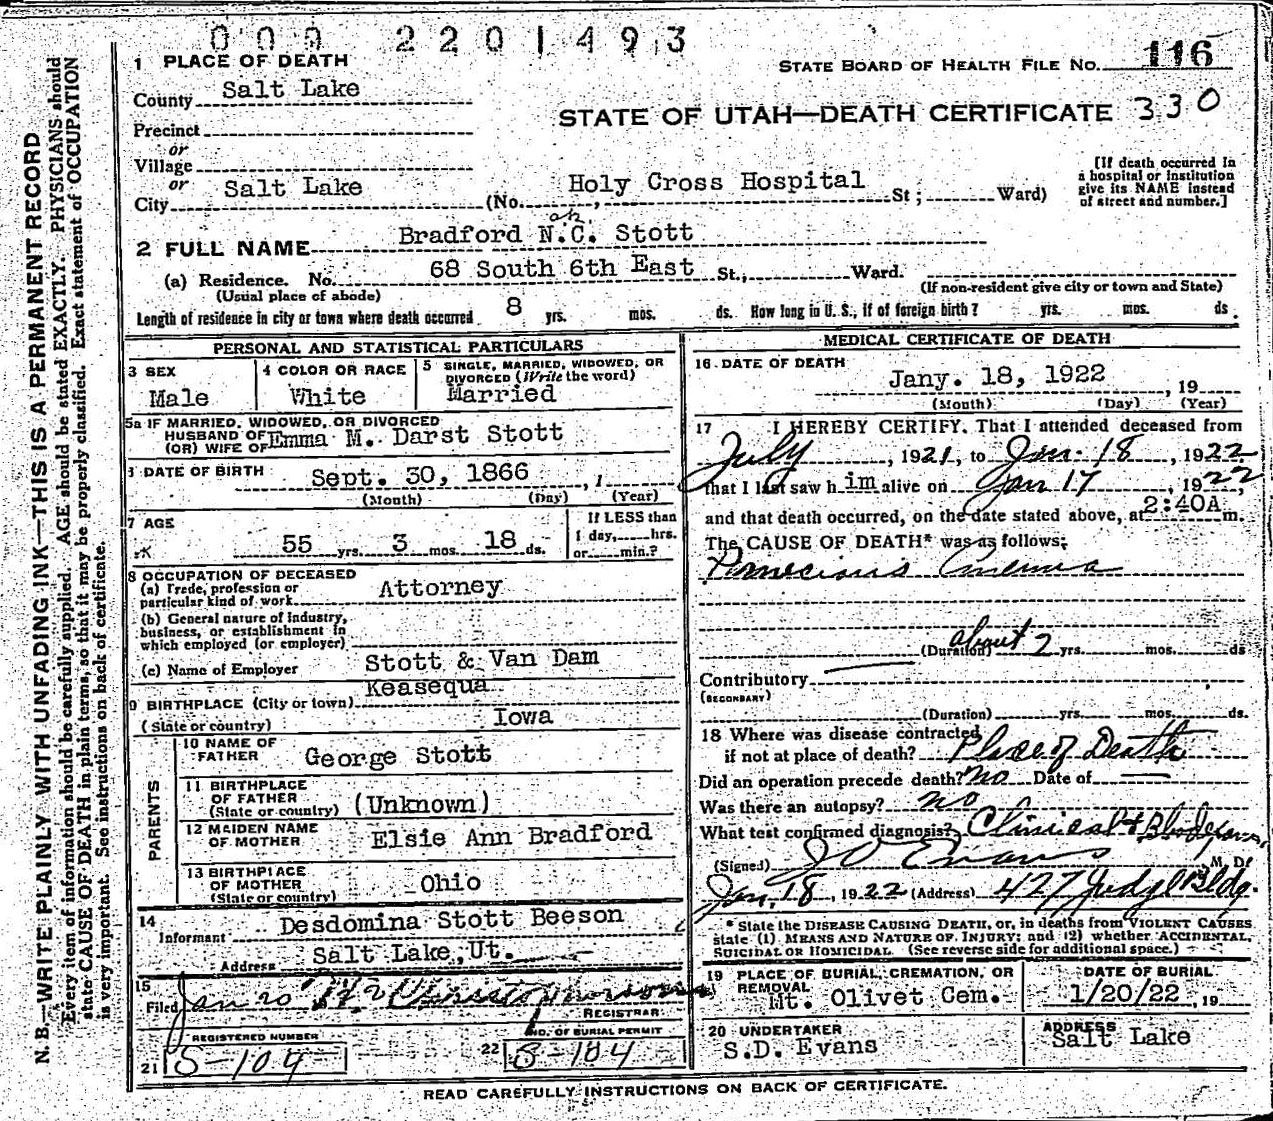 009 2201493
1 PLACE OF DEATH
STATE BOARD OF HEALTH FILE No. 116
County Salt Lake
STATE OF UTAH—DEATH CERTIFICATE 330
Precinct
or
Village
or
City Salt Lake (No. Holy Cross Hospital St ; Ward)
[If death occurred in
a hospital or institution
give its NAME instead
of street and number.]
2 FULL NAME Bradford N.C. Stott
(a) Residence. No. 68 South 6th East St., Ward.
(Usual place of abode) (If non-resident give city or town and State)
Length of residence in city or town where death occurred 8 yrs. mos. ds. How long in U. S., if of foreign birth? yrs. mos. ds.
PERSONAL AND STATISTICAL PARTICULARS
3 SEX
Male
4 COLOR OR RACE
White
5 SINGLE, MARRIED, WIDOWED, OR
DIVORCED (Write the word)
Married
5a IF MARRIED, WIDOWED, OR DIVORCED
HUSBAND OF
(OR) WIFE OF Emma M. Darst Stott
DATE OF BIRTH Sept. 30, 1866 , 1
(Month) (Day) (Year)
7 AGE
55 yrs. 3 mos. 18 ds.
If LESS than
1 day, hrs.
or min.?
8 OCCUPATION OF DECEASED
(a) Trade, profession or
particular kind of work Attorney
(b) General nature of industry,
business, or establishment in
which employed (or employer)
(c) Name of Employer Stott & Van Dam
9 BIRTHPLACE (City or town) Keasequa
(State or country) Iowa
PARENTS
10 NAME OF
FATHER George Stott
11 BIRTHPLACE
OF FATHER
(State or country) (Unknown)
12 MAIDEN NAME
OF MOTHER Elsie Ann Bradford
13 BIRTHPLACE
OF MOTHER
(State or country) Ohio
14
Informant Desdomina Stott Beeson
Address Salt Lake, Ut.
15
Filed Jan 20
REGISTRAR
REGISTERED NUMBER
21 S-104
NO. OF BURIAL PERMIT
22 S-104
MEDICAL CERTIFICATE OF DEATH
16 DATE OF DEATH
Jany. 18, 1922 , 19
(Month) (Day) (Year)
17 I HEREBY CERTIFY, That I attended deceased from
July , 1921, to Jan. 18 , 1922,
that I last saw h im alive on Jan 17 , 1922,
and that death occurred, on the date stated above, at 2:40A m.
The CAUSE OF DEATH* was as follows:
Pernecious Anemia
(Duration) about 2 yrs. mos. ds
Contributory
(SECONDARY)
(Duration) yrs. mos. ds.
18 Where was disease contracted
if not at place of death? Place of Death
Did an operation precede death? no Date of
Was there an autopsy? no
What test confirmed diagnosis? Clinical &
(Signed) J O Evans M. D.
Jan. 18, 1922 (Address) 427 Judge Bldg.
* State the DISEASE CAUSING DEATH, or, in deaths from VIOLENT CAUSES
state (1) MEANS AND NATURE OF INJURY; and (2) whether ACCIDENTAL,
SUICIDAL OR HOMICIDAL. (See reverse side for additional space.)
19 PLACE OF BURIAL, CREMATION, OR
REMOVAL
Mt. Olivet Cem.
DATE OF BURIAL
1/20/22 , 19
20 UNDERTAKER
S.D. Evans
ADDRESS
Salt Lake
READ CAREFULLY INSTRUCTIONS ON BACK OF CERTIFICATE.
N. B.—WRITE PLAINLY WITH UNFADING INK—THIS IS A PERMANENT RECORD
Every item of information should be carefully supplied. AGE should be stated EXACTLY. PHYSICIANS should
state CAUSE OF DEATH in plain terms, so that it may be properly classified. Exact statement of OCCUPATION
is very important. See instructions on back of certificate.